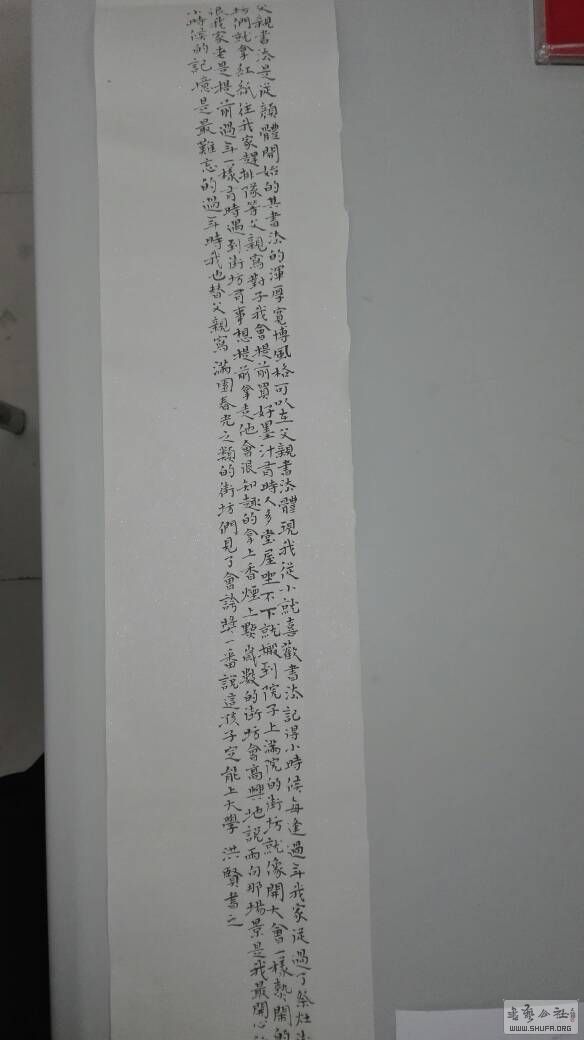 父親書法是從顏體開始的其書法的渾厚寬博風格可以在父親書法體現我從小就喜歡書法記得小時候每逢過年我家從過了祭灶
坊們就拿紅紙往我家趕排隊等父親寫對子我會提前買好墨汁書時人多堂屋坐不下就搬到院子上滿院的街坊就像開大會一樣熱鬧的
很我家老是提前過年一樣有時遇到街坊有事想提前拿走他會很知趣的拿上香煙上點歲數的街坊會高興地說而向那場景是我最開心
小時候的記憶是最難忘的過年時我也替父親寫滿園春光之類的街坊們見了會誇獎一番說這孩子定能上大學 洪賢書之
書藝公社
WWW.SHUFA.ORG